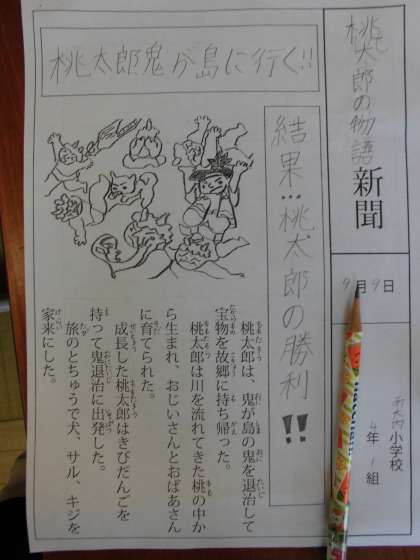 桃太郎の物語新聞
9月9日
小学校
4年1組
桃太郎鬼が島に行く!!
結果…桃太郎の勝利!!
桃太郎は、鬼が島の鬼を退治して
宝物を故郷に持ち帰った。
桃太郎は川を流れてきた桃の中か
ら生まれ、おじいさんとおばあさん
に育てられた。
成長した桃太郎はきびだんごを
持って鬼退治に出発した。
旅のとちゅうで犬、サル、キジを
家来にした。